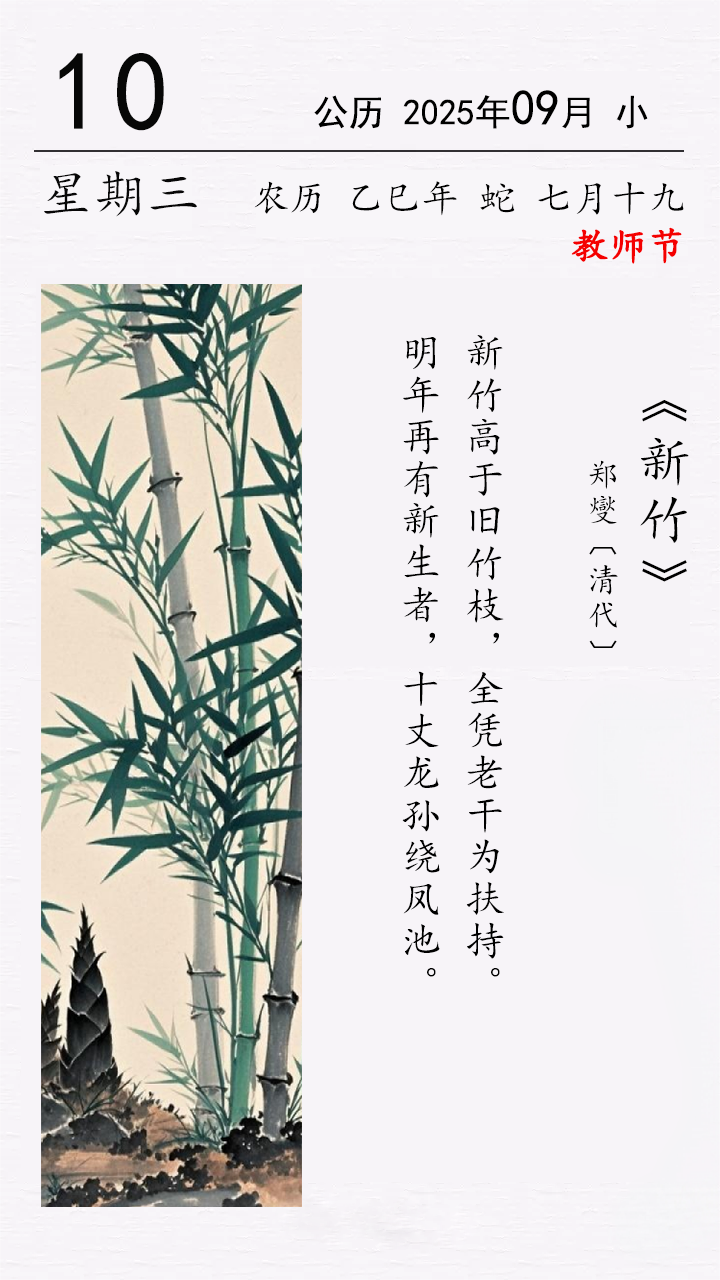 10
公历 2025年09月 小
星期三
农历 乙巳年 蛇 七月十九
教师节
《新竹》
郑燮〔清代〕
新竹高于旧竹枝，全凭老干为扶持。
明年再有新生者，十丈龙孙绕凤池。